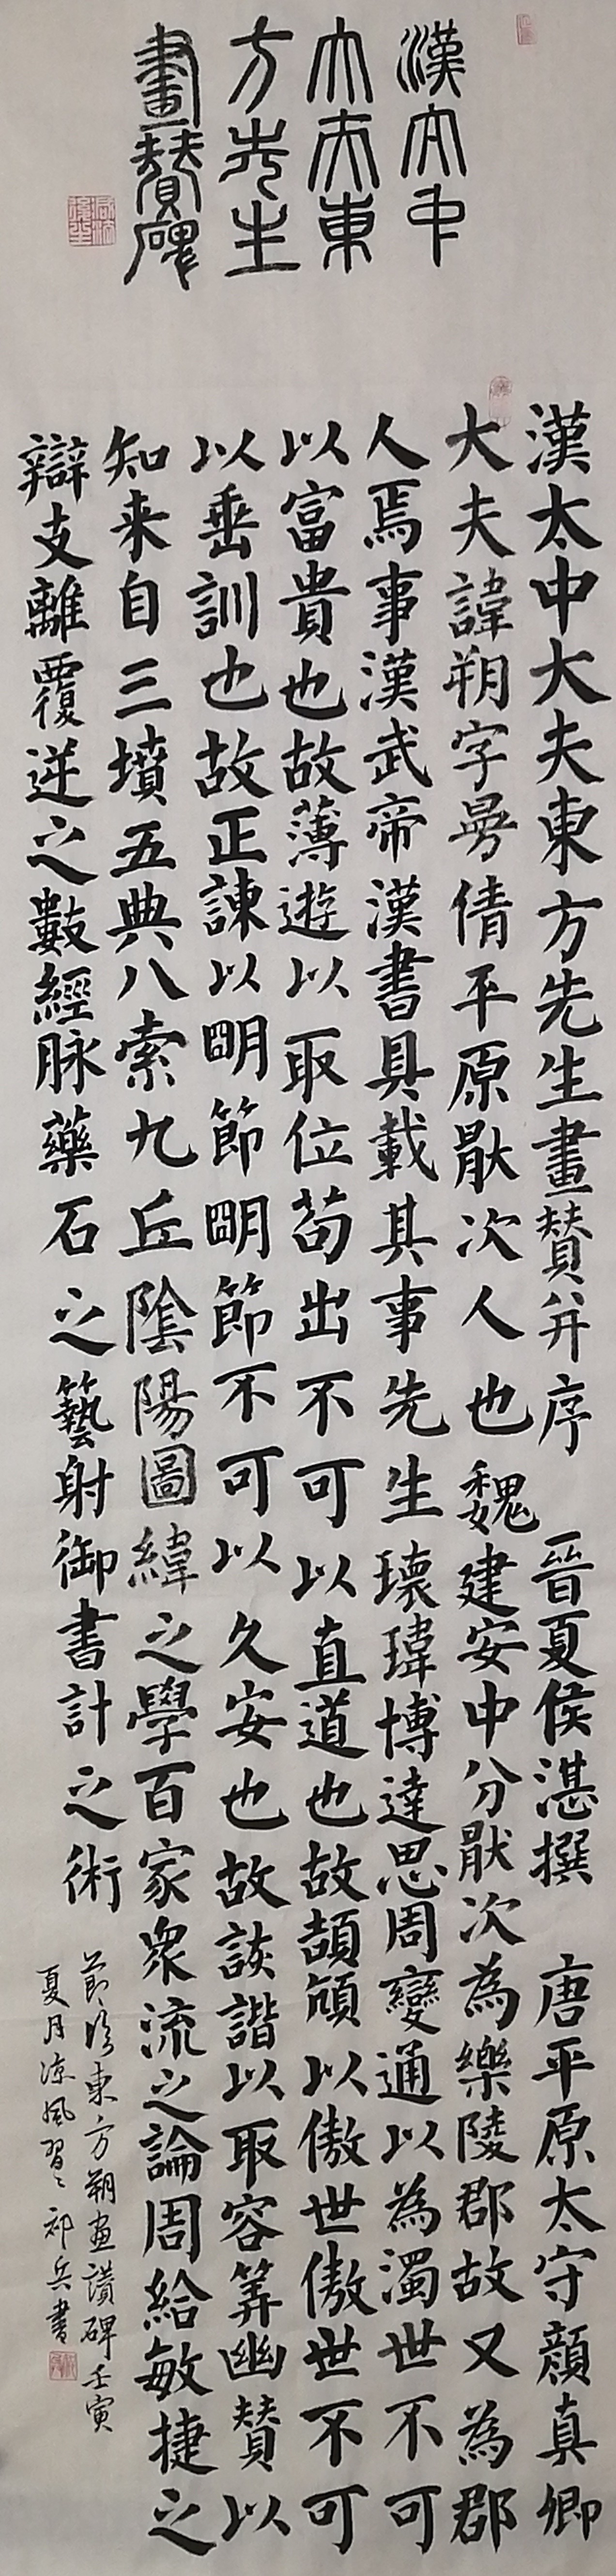 漢太中
大夫東
方先生
畫贊碑
漢太中大夫東方先生畫贊并序 晉夏侯湛撰 唐平原太守顏真卿
大夫諱朔字曼倩平原厭次人也魏建安中分厭次為樂陵郡故又為郡
人焉事漢武帝漢書具載其事先生瓌瑋博達思周變通以為濁世不可
以富貴也故薄遊以取位苟出不可以直道也故頡頏以傲世傲世不可
以垂訓也故正諫以明節明節不可以久安也故詼諧以取容筭幽贊以
知来自三墳五典八索九丘陰陽圖緯之學百家眾流之論周給敏捷之
辯支離覆逆之數經脉藥石之藝射御書計之術
節臨東方朔畫讚碑壬寅
夏月涼風習習祁兵書